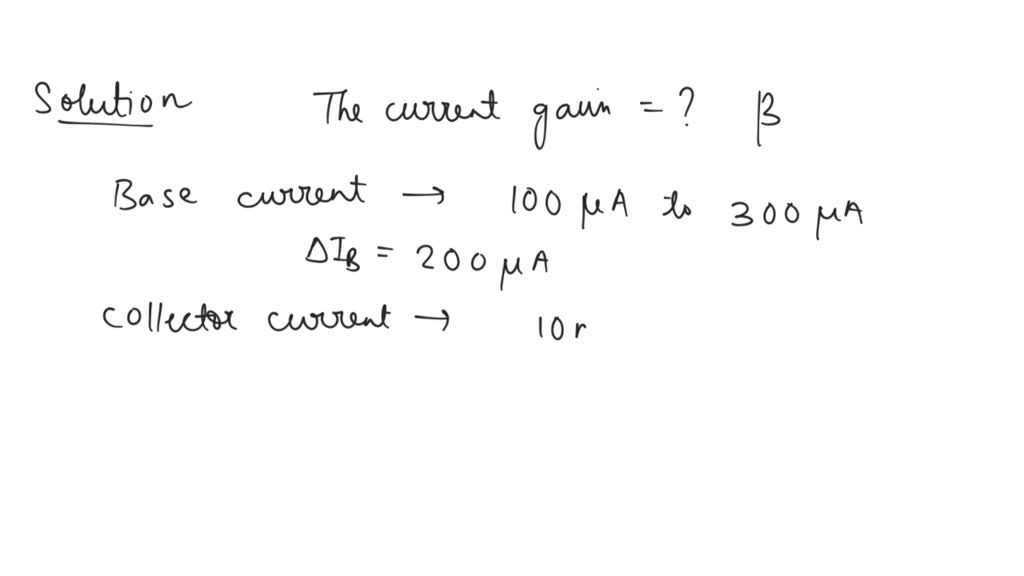 Solution The current gain = ? β
Base current → 100 μA to 300 μA
ΔI_B = 200 μA
Collector current → 10 r